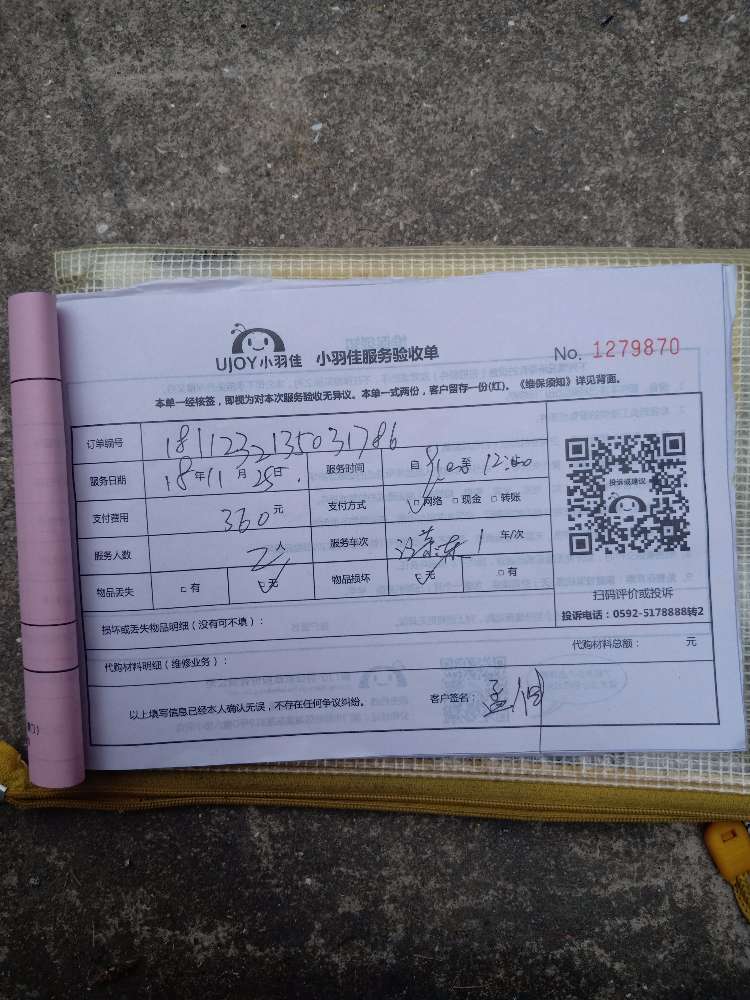 UJOY小羽佳 小羽佳服务验收单 No. 1279870
本单一经核签，即视为对本次服务验收无异议。本单一式两份，客户留存一份(红)。《维保须知》详见背面。
订单编号 1811232135031786
服务日期 18年11月25日 服务时间 自 至 12:00
支付费用 360元 支付方式 □网络 □现金 □转账
服务人数 2人 服务车次 1 车/次
物品丢失 □有 □无 物品损坏 □无 □有
投诉或建议
扫码评价或投诉
投诉电话：0592-5178888转2
损坏或丢失物品明细（没有可不填）：
代购材料明细（维修业务）： 代购材料总额： 元
以上填写信息已经本人确认无误，不存在任何争议纠纷。 客户签名：孟